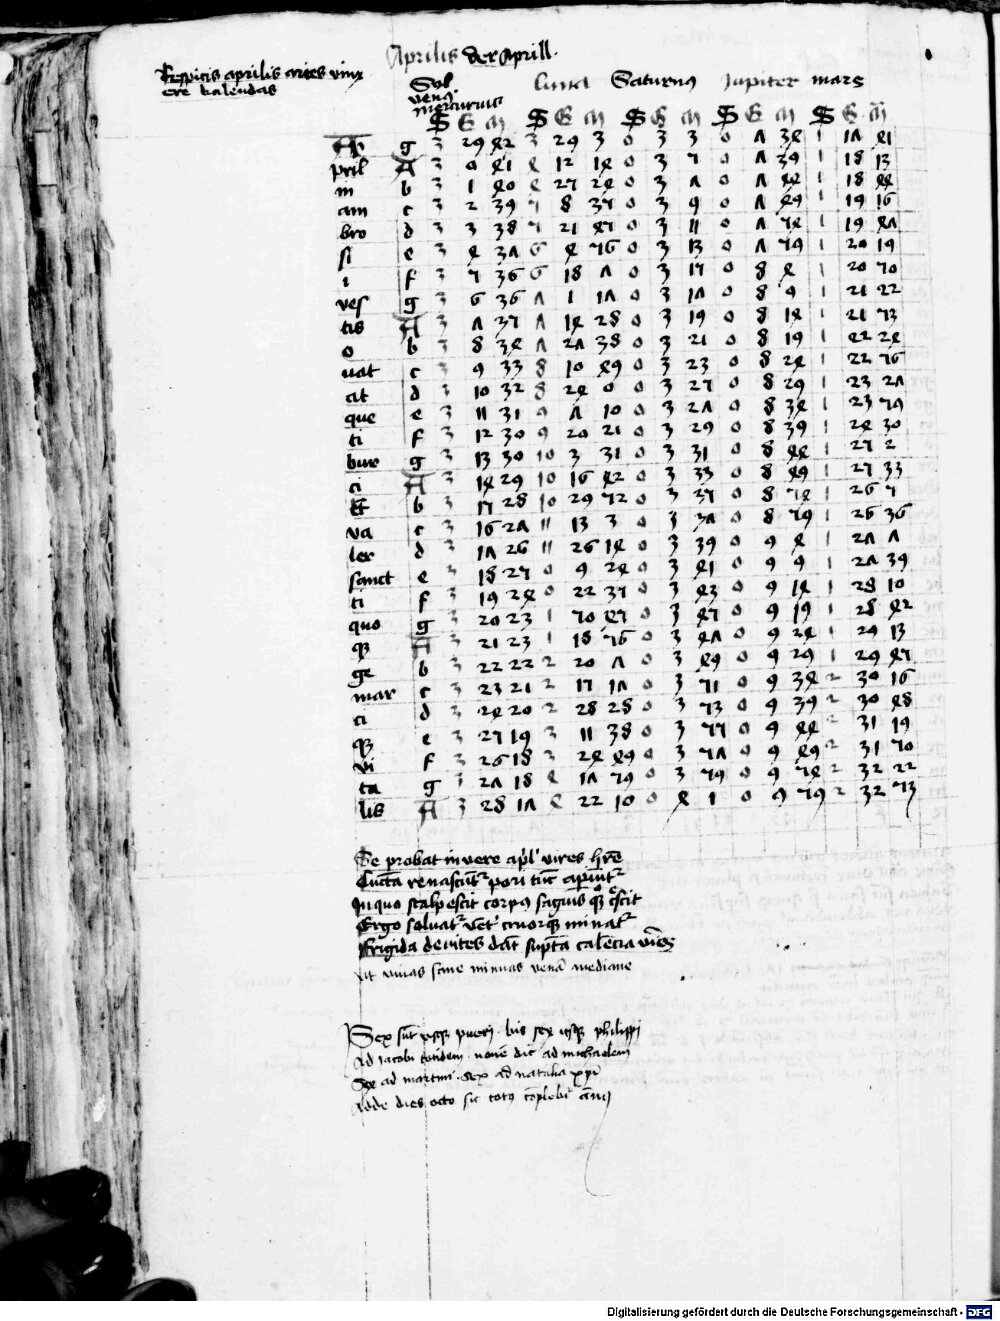 Aprilis der Aprill.
Respicis aprilis aries vnix
ere kalendas
Sol luna Saturnus Jupiter mars
venus
mercurius
S G m S G m S G m S G m S G m
Ap g 3 29 42 3 29 3 0 3 3 0 7 34 1 17 41
pril A 3 0 41 4 12 14 0 3 5 0 7 39 1 18 13
in b 3 1 40 4 25 24 0 3 7 0 7 44 1 18 44
am c 3 2 39 5 8 35 0 3 9 0 7 49 1 19 16
bro d 3 3 38 5 21 45 0 3 11 0 7 54 1 19 47
si e 3 4 37 6 4 56 0 3 13 0 7 59 1 20 19
i f 3 5 36 6 18 7 0 3 15 0 8 4 1 20 50
ves g 3 6 36 7 1 17 0 3 17 0 8 9 1 21 22
tis A 3 7 35 7 14 28 0 3 19 0 8 14 1 21 53
o b 3 8 34 7 27 38 0 3 21 0 8 19 1 22 24
uat c 3 9 33 8 10 49 0 3 23 0 8 24 1 22 56
cit d 3 10 32 8 24 0 0 3 25 0 8 29 1 23 27
que e 3 11 31 9 7 10 0 3 27 0 8 34 1 23 59
ti f 3 12 30 9 20 21 0 3 29 0 8 39 1 24 30
bur g 3 13 30 10 3 31 0 3 31 0 8 44 1 25 2
ci A 3 14 29 10 16 42 0 3 33 0 8 49 1 25 33
Et b 3 15 28 10 29 52 0 3 35 0 8 54 1 26 5
va c 3 16 27 11 13 3 0 3 37 0 8 59 1 26 36
ler d 3 17 26 11 26 14 0 3 39 0 9 4 1 27 7
sanct e 3 18 25 0 9 24 0 3 41 0 9 9 1 27 39
ti f 3 19 24 0 22 35 0 3 43 0 9 14 1 28 10
quo g 3 20 23 1 50 45 0 3 45 0 9 19 1 28 42
A 3 21 23 1 18 56 0 3 47 0 9 24 1 29 13
ge b 3 22 22 2 20 7 0 3 49 0 9 29 1 29 45
mar c 3 23 21 2 15 17 0 3 51 0 9 34 2 30 16
ci d 3 24 20 2 28 28 0 3 53 0 9 39 2 30 48
e 3 25 19 3 11 38 0 3 55 0 9 44 2 31 19
vi f 3 26 18 3 24 49 0 3 57 0 9 49 2 31 50
ta g 3 27 18 4 17 59 0 3 59 0 9 54 2 32 22
lis A 3 28 17 4 22 10 0 4 1 0 9 59 2 32 53
Se probat in vere
Cucta renascunt pori tuc apiunt
In quo scalpescit corpus saguis
Ergo soluat vet cruorq minat
Frigida deuites dat supta calencia
vt viuas sane minuas vena mediane
Sex sut pueri bis sex philippi
Ad Jacobi totidem noue dic ad michaelem
Sex ad martini sex ad natalia xpi
Adde dies octo sic totus complebit
Digitalisierung gefördert durch die Deutsche Forschungsgemeinschaft - DFG